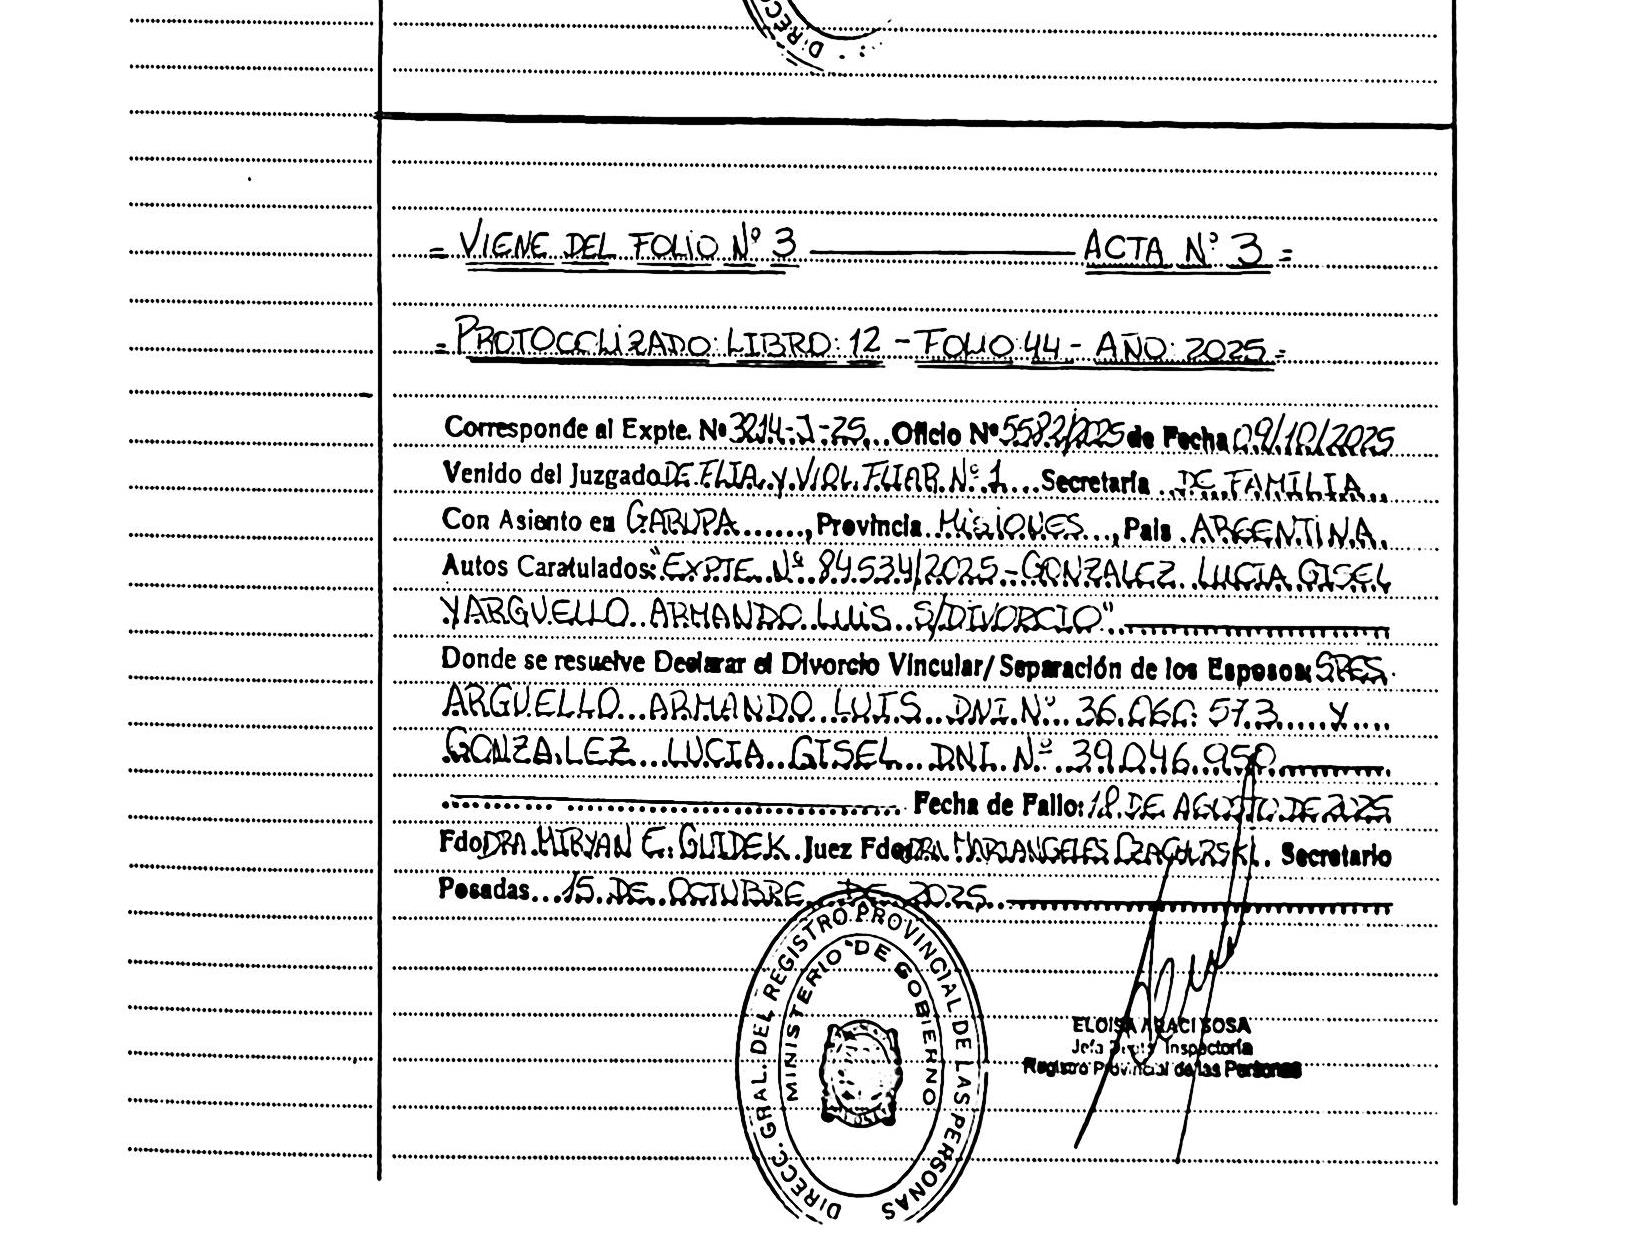 DIRECC
= VIENE DEL FOLIO Nº 3 ACTA Nº 3 =
= PROTOCOLIZADO: LIBRO: 12 - FOLIO: 44 - AÑO: 2025 =
Corresponde al Expte. Nº 3214-J-25 Oficio Nº 5582/2025 de Fecha 09/10/2025
Venido del Juzgado DE FLIA. y VIOL. FLIAR. Nº 1 Secretaría DE FAMILIA
Con Asiento en GARUPA, Provincia MISIONES, País ARGENTINA.
Autos Caratulados: "EXPTE. Nº 84.534/2025 - GONZALEZ LUCIA GISEL
Y ARGUELLO ARMANDO LUIS S/DIVORCIO"
Donde se resuelve Declarar el Divorcio Vincular/ Separación de los Esposos: SRES.
ARGUELLO ARMANDO LUIS DNI. Nº 36.060.573 y
GONZALEZ LUCIA GISEL DNI. Nº 39.046.950
Fecha de Fallo: 18 DE AGOSTO DE 2025
Fdo DRA. MIRYAN E. GUIDEK Juez Fdo DRA. MARIANGELES Secretario
Posadas 15 DE OCTUBRE DE 2025
DIRECC. GRAL. DEL REGISTRO PROVINCIAL DE LAS PERSONAS
MINISTERIO DE GOBIERNO
ELOISA ARACI SOSA
Jefa Inspectoría
Registro Provincial de las Personas